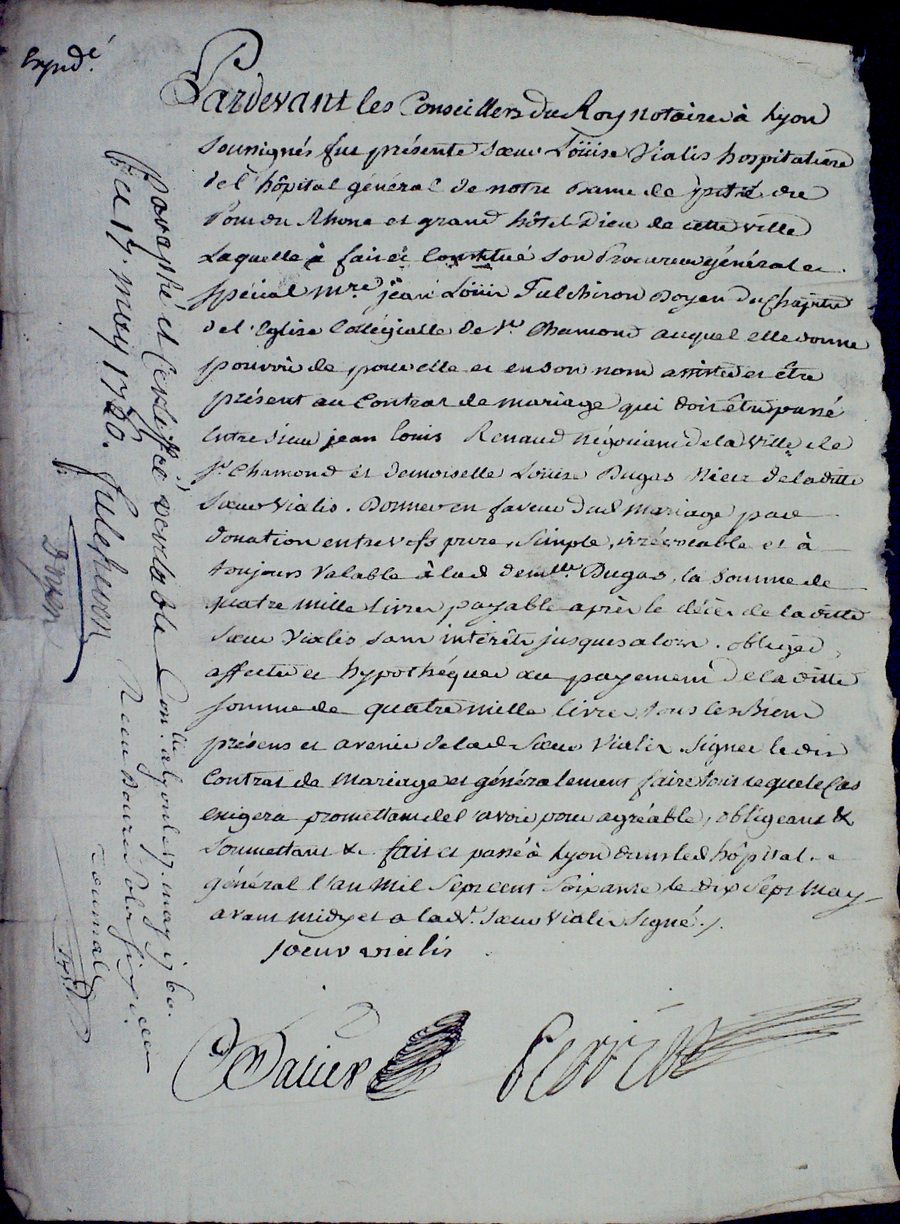 Expéd.é
Pardevant les Conseillers du Roy notaires à Lyon
Soussignés fut présente sœur Loüise Vialis hospitaliere
de l'hôpital général de notre Dame de pitié du
Pont du Rhone et grand hôtel Dieu de cette ville
Laquelle à fait et Constitué son Procureur général et
spécial Mre jean Loüis Fulchiron Doyen du Chapitre
de l'Eglise Collégialle de St Chamond auquel elle donne
pouvoir de pour elle et en son nom assister et être
présent au Contrat de mariage qui doit être passé
Entre sieur jean Louis Renaud négociant de la Ville de
St Chamond et demoiselle Loüise Dugas Niece de ladite
Sœur Vialis. Donner en faveur dud mariage par
donation entre vifs pure, simple, irrévocable et à
toujours Valable à lad demlle Dugas, la somme de
quatre mille livres payable après le décès de ladite
Sœur Vialis sans intérêts jusques alors. obliger,
affecter et hypothéquer au payement de ladite
somme de quatre mille livres tous les biens
présens et avenir de lad Sœur Vialis. Signer ledit
Contrat de Mariage et généralement faire tout ce que le Cas
exigera promettant de l'avoir pour agréable, obligeant &
Soumettant &. fait et passé à Lyon dans led hôpital
général l'an Mil Sept Cent Soixante le dix Sept May
avant midy et a lad. Sœur Vialis Signé.
soeur vialis
Perrin
Paraphé et Certiffié véritable
ce 17. may 1760. Fulchiron
Doyen
Con.llé à Lyon le 17. may 1760.
Reçu douze sols